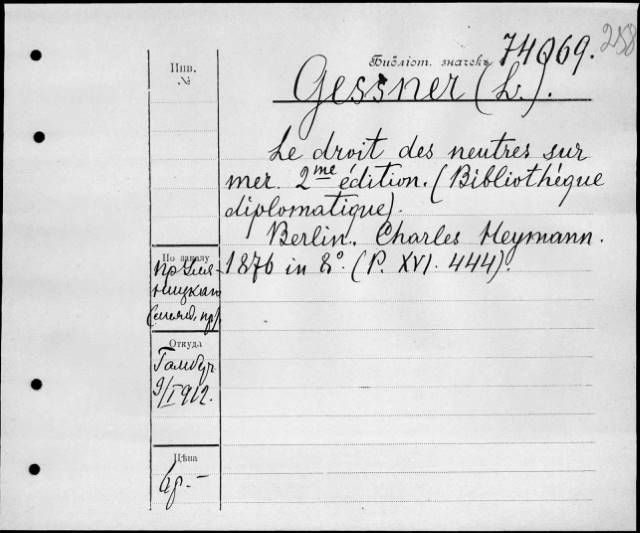 258
Библіот. значекъ 74069.
Инв.
№
Gessner (L.).
Le droit des neutres sur
mer. 2me édition. (Bibliothèque
diplomatique).
Berlin. Charles Heymann.
1876 in 8°. (P. XVI. 444).
По заказу
пр Уля-
ницкаго
Откуда
Гамбург
9/I 1912.
Цѣна
6р.-